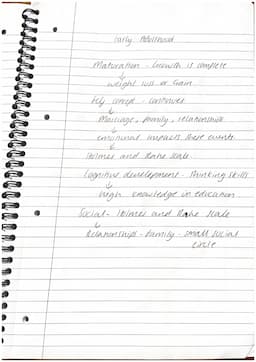 Early Adulthood
Maturation - Growth is complete
↓
weight loss or Gain.
Self concept - continues
↓
Marriage, family, relationships
↓
emotional impacts these events
↓
Holmes and Rahe Scale.
Cognitive development - thinking skills
↓
high knowledge in education.
Social - Holmes and Rahe Scale
↓
Relationships - family - small social
circle